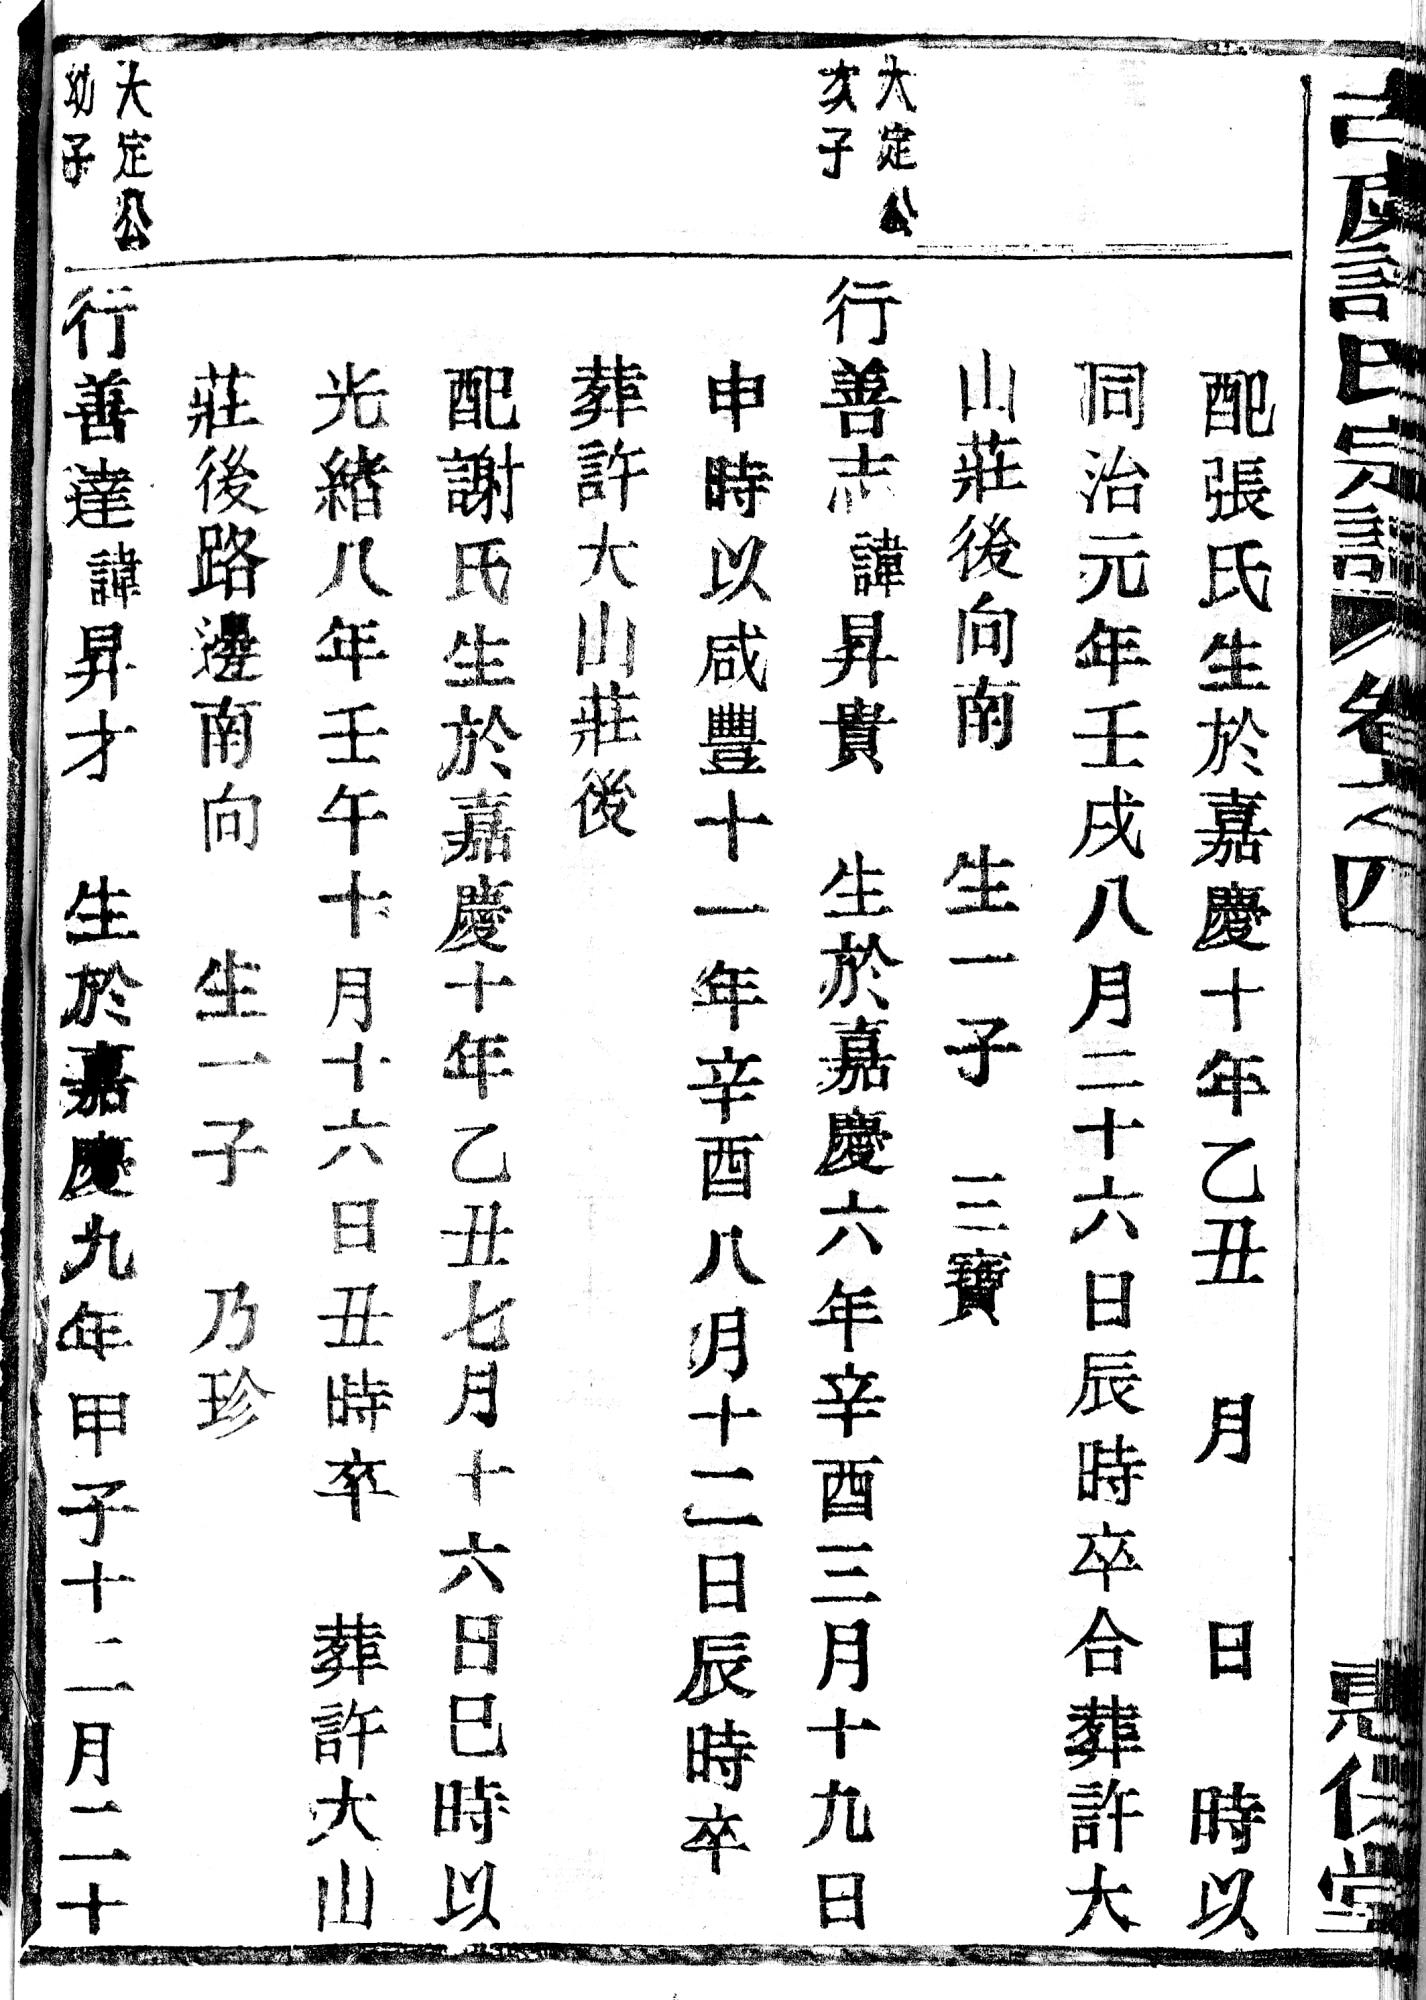 許氏宗譜 卷之四
仁堂
配張氏生於嘉慶十年乙丑 月 日 時以
同治元年壬戌八月二十六日辰時卒合葬許大
山莊後向南 生一子 三寶
大定公
次子
行善志諱昇貴 生於嘉慶六年辛酉三月十九日
申時以咸豐十一年辛酉八月十二日辰時卒
葬許大山莊後
配謝氏生於嘉慶十年乙丑七月十六日巳時以
光緒八年壬午十月十六日丑時卒 葬許大山
莊後路邊南向 生一子 乃珍
大定公
幼子
行善達諱昇才 生於嘉慶九年甲子十二月二十